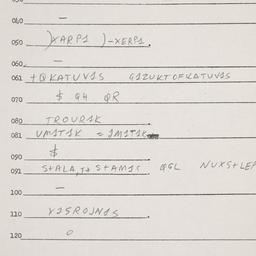 040 —
050 )XARP1 )-XERP1.
060 —
061 +QKATUV1S G1ZUKTOFKATUV1S
070 $ G4 QR
080 TROUR1K
081 UM1T1K = 1M1T1K
090 $
091 S+ALA, T+ S+AM1T QGL NUXS+LEP
100 —
110 Y1SROJN1S
120 0